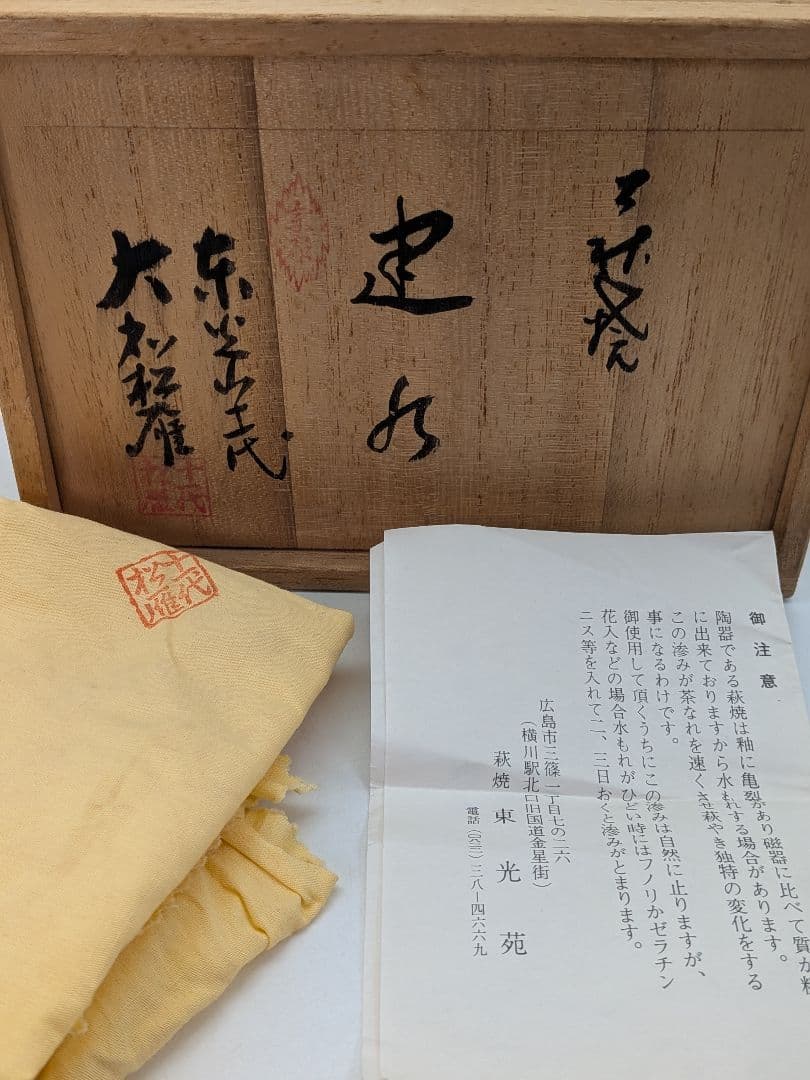 萩焼
建水
陶器である萩焼は釉に亀裂があり磁器に比べて質が粗
に出来ておりますから水もれする場合があります。
この滲みが茶なれを速くさせ萩やき独特の変化をする
事になるわけです。
御使用して頂くうちにこの滲みは自然に止りますが、
花入などの場合水もれがひどい時にはフノリかゼラチン
ニス等を入れて二、三日おくと滲みがとまります。
御注意
広島市三篠一丁目七の二六
(横川駅北口旧国道金星街)
萩焼 東光苑
電話(〇八二二)三八ー四六六九